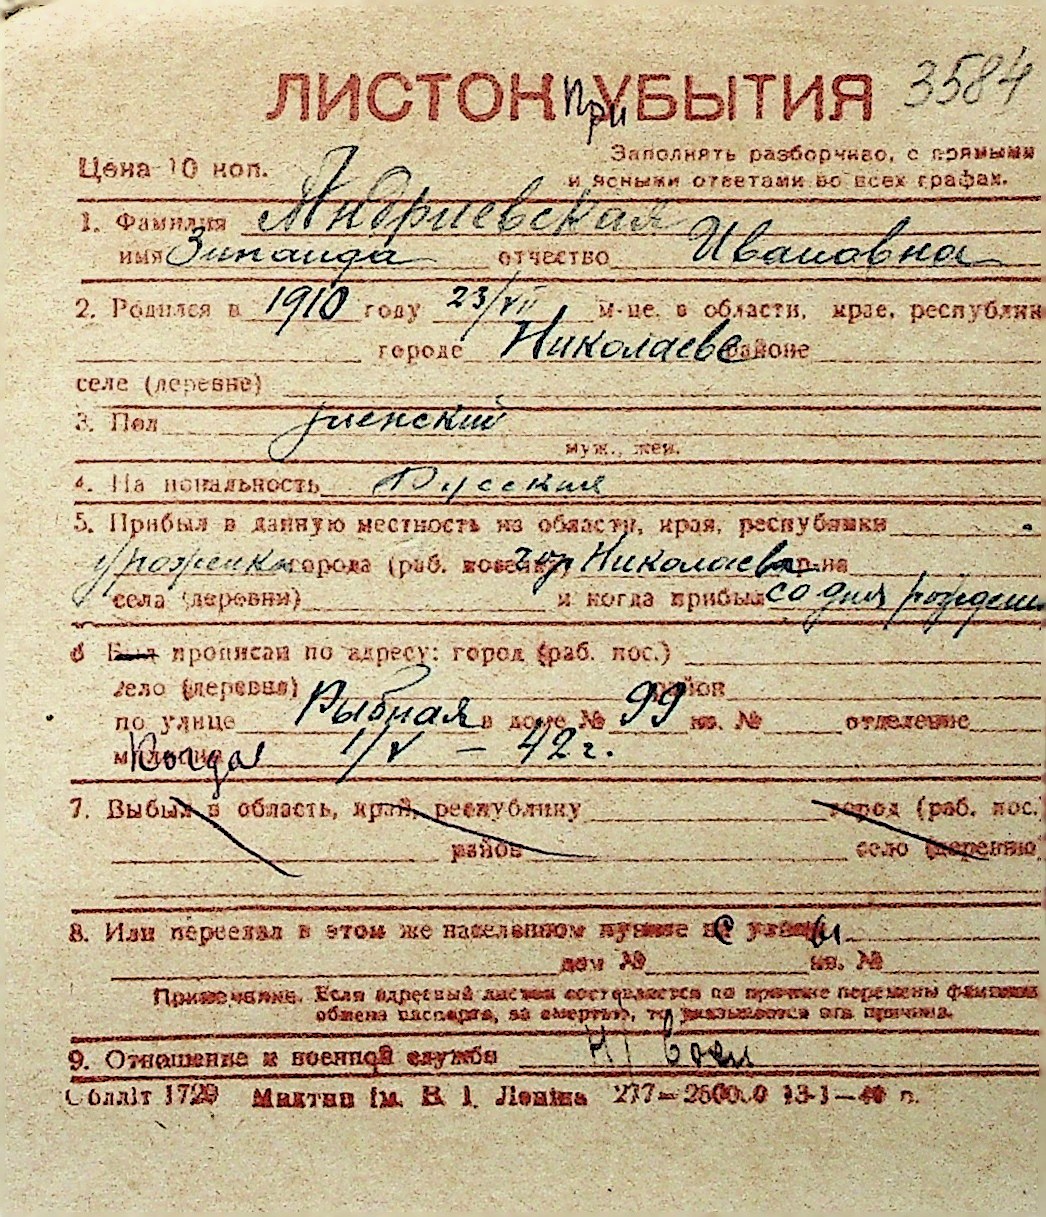 ЛИСТОК при УБЫТИЯ 3584
Цена 10 коп.
Заполнять разборчиво, с прямыми
и ясными ответами во всех графах.
1. Фамилия Андриевская
имя Зинаида отчество Ивановна
2. Родился в 1910 году 23/VII м-це, в области, крае, республик
городе Николаеве районе
селе (деревне)
3. Пол женский
муж., жен.
4. Национальность Русская
5. Прибыл в данную местность из области, края, республики
уроженка города (раб. поселка) гор Николаева р-на
села (деревни) и когда прибыл со дня рожден
6 Был прописан по адресу: город (раб. пос.)
село (деревня) район
по улице Рыбная в доме № 99 кв. № отделение
милиции Когда 1/V – 42 г.
7. Выбыл в область, край, республику город (раб. пос.)
район село (деревню)
8. Или переехал в этом же населенном пункте с улицы
дом № кв. №
Примечание. Если адресный листок составляется по причине перемены фамилии
обмена паспорта, за смертью, то указывается эта причина.
9. Отношение к военной службе н/воен
Обллiт 1729 Миктип iм. В. I. Ленiна 277— 13-1—40 п.